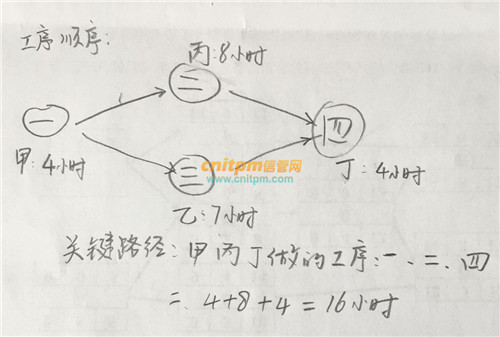 工序顺序:
丙:8小时
一
二
三
四
甲:4小时
cnitpm信管网
www.cnitpm.com
丁:4小时
乙:7小时
关键路径:甲丙丁做的工序:一、二、四
=4+8+4=16小时